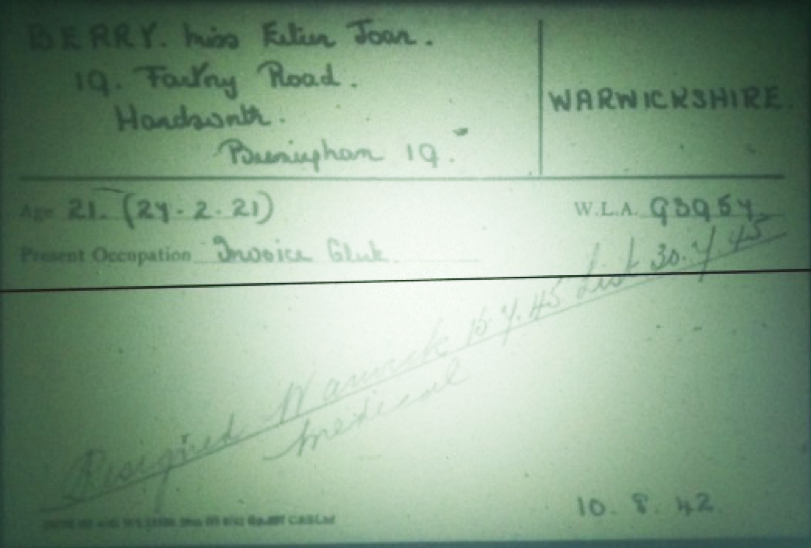 BERRY. Miss Eileen Joan.
19. Factory Road.
Handsworth.
Birmingham 19.
WARWICKSHIRE.
Age 21. (24.2.21)
W.L.A. 93954
Present Occupation Invoice Clerk.
Resigned Warwick 15.7.45 List 30.7.45
medical
10.8.42